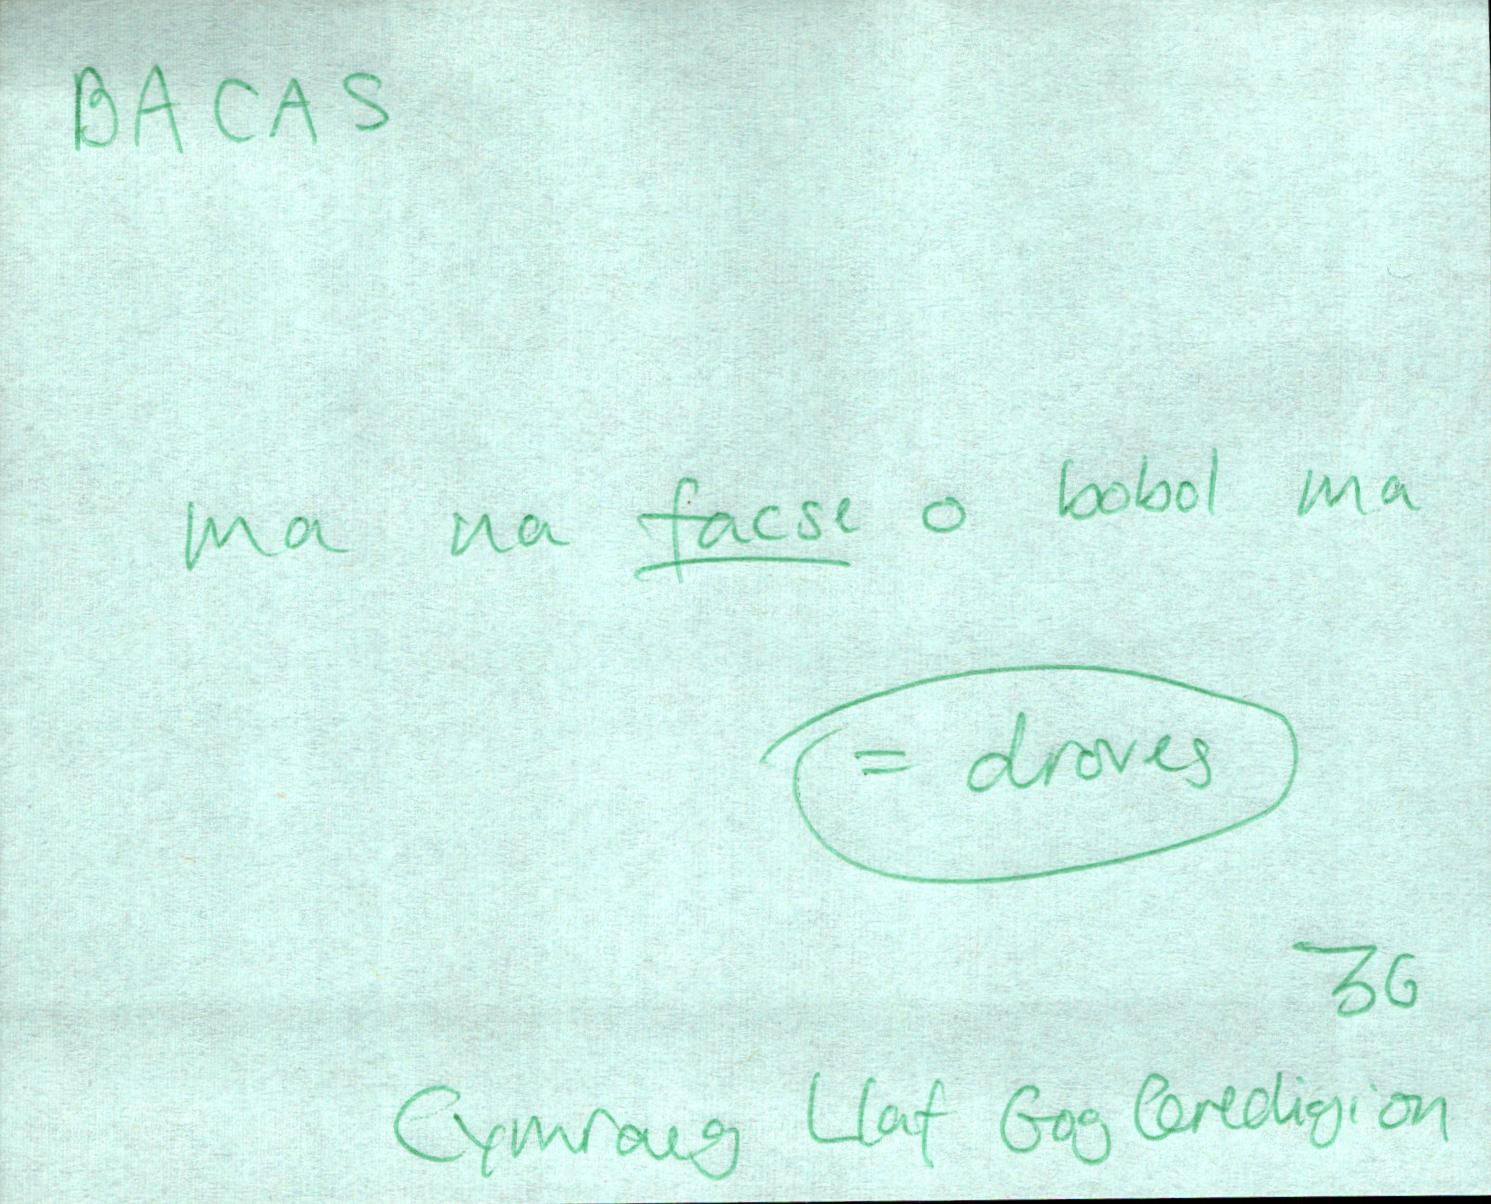 BACAS
ma na facse o bobol ma
= droves
36
Cymraeg Llaf Gog Ceredigion